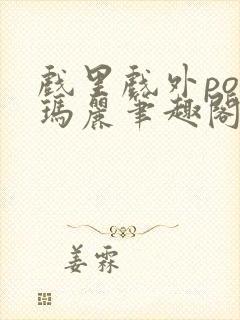 戲里戲外po
瑪麗筆趣閣
姜霖